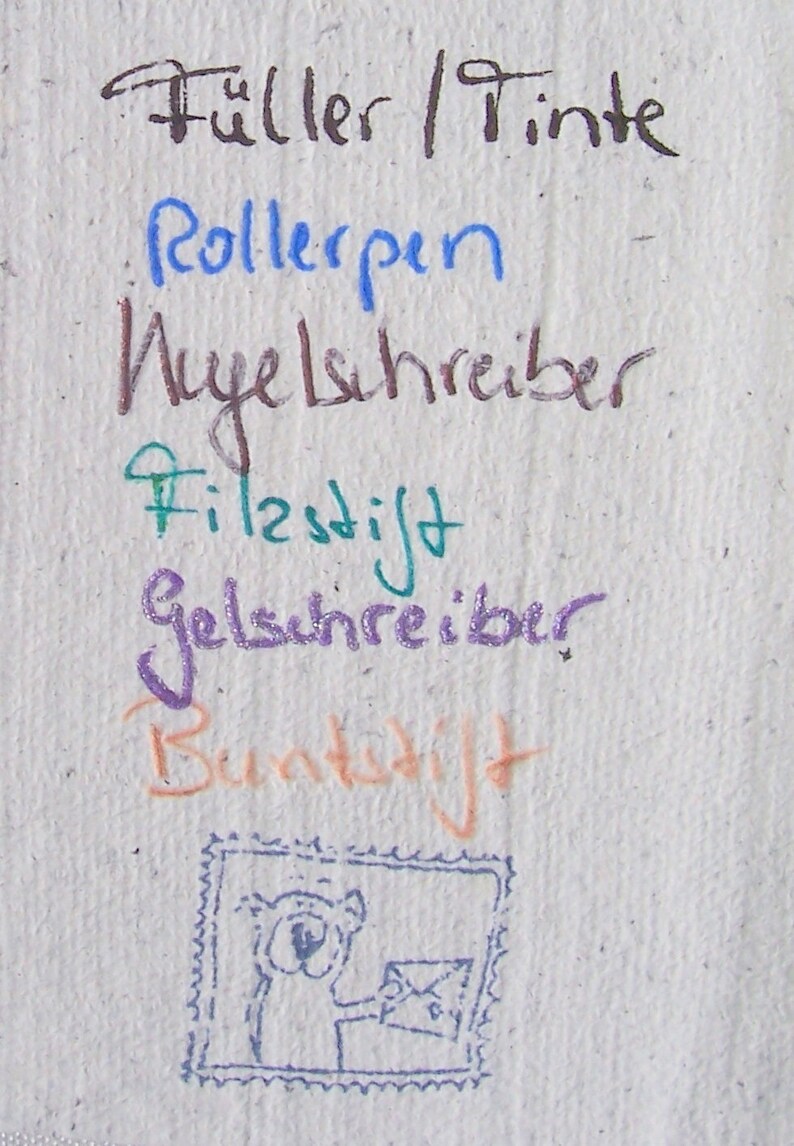 Füller / Tinte
Rollerpen
Kugelschreiber
Filzstift
Gelschreiber
Buntstift